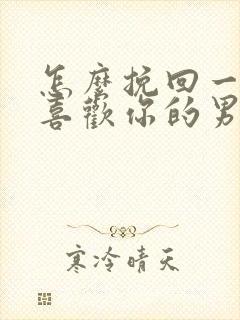 怎麼挽回一
喜歡你的男
寒冷晴天